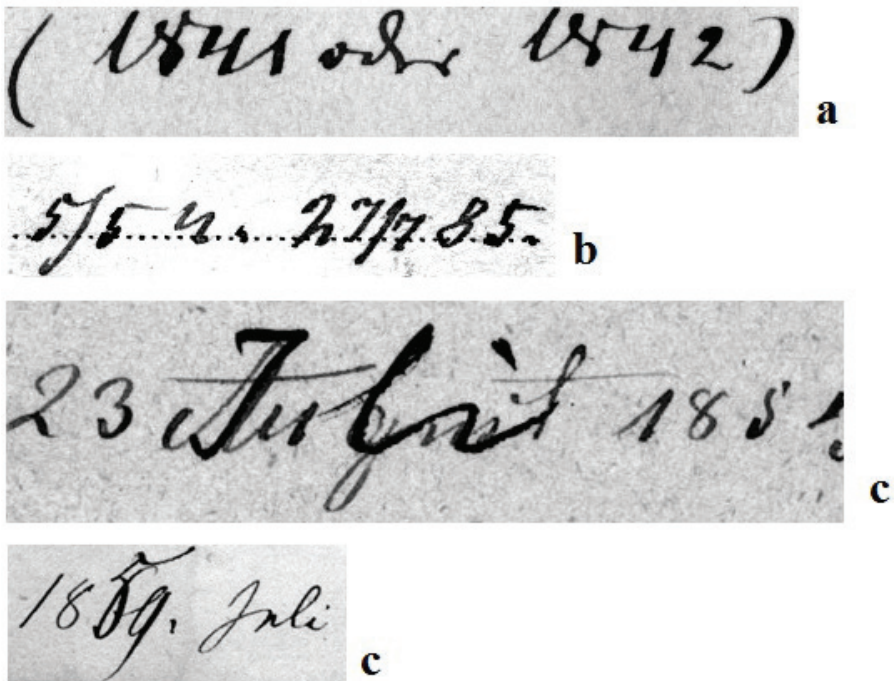 (1841 oder 1842) a
5/5 u. 27/7 85. b
23 Juli 1855 c
1859. Juli c